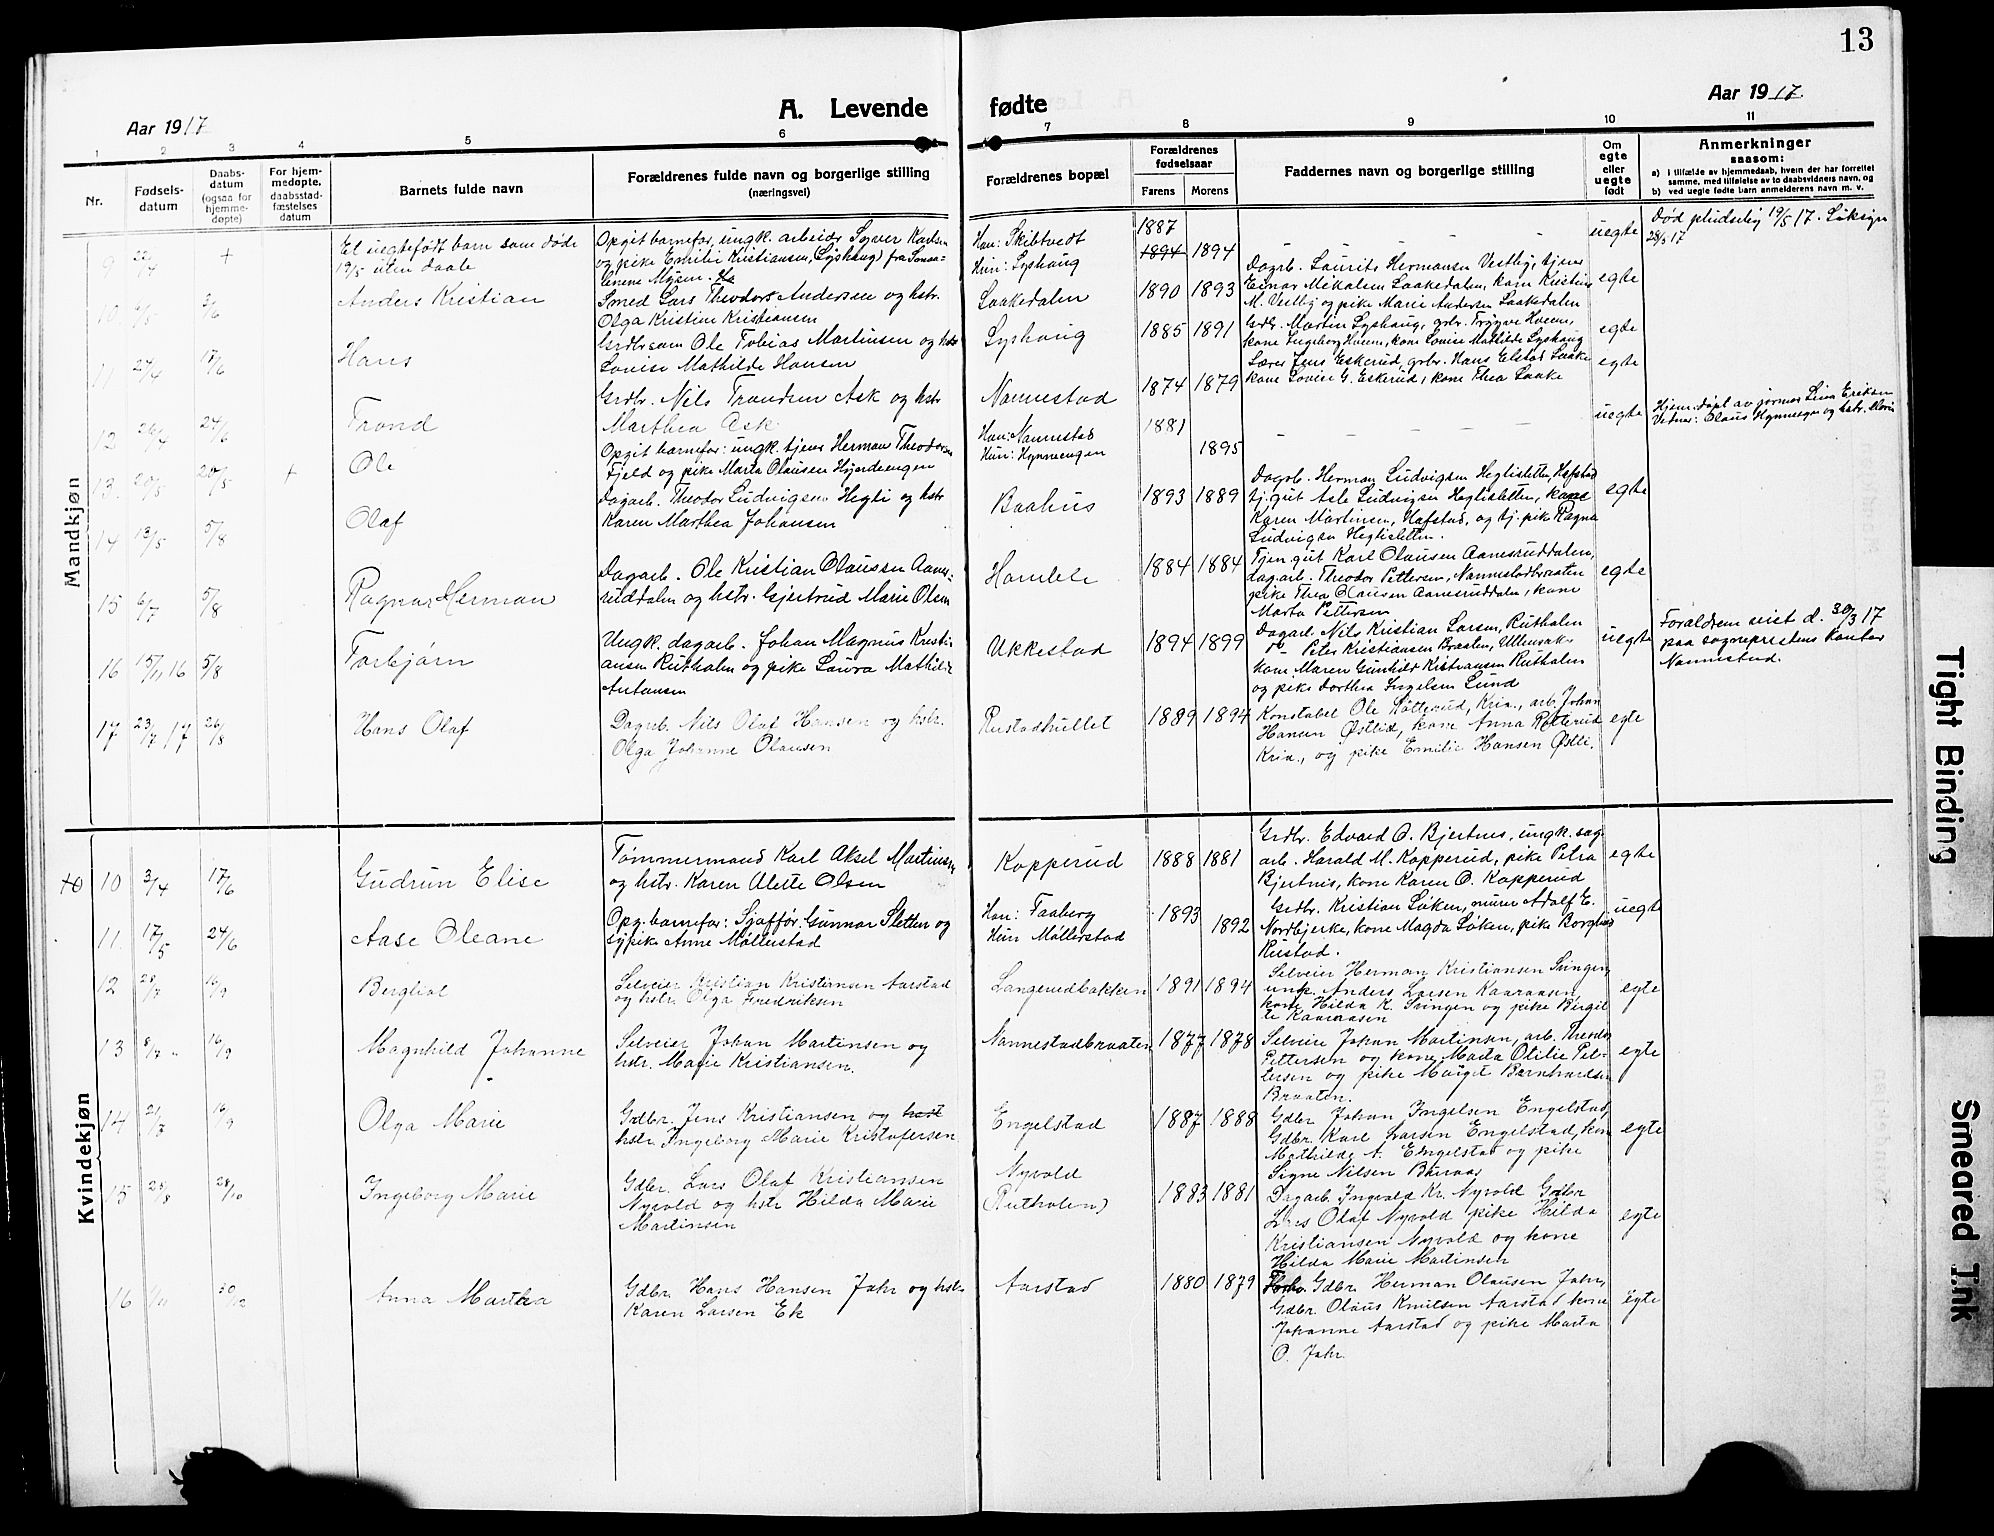 13
Aar 1917
A. Levende fødte
Aar 1917.
1 2 3 4 5 6 7 8 9 10 11
Nr.
Fødsels-
datum
Daabs-
datum
(ogsaa for
hjemme-
døpte)
For hjem-
medøpte,
daabsstad-
fæstelses
datum
Barnets fulde navn
Forældrenes fulde navn og borgerlige stilling
(næringsvei)
Forældrenes bopæl
Forældrenes
fødselsaar
Farens
Morens
Faddernes navn og borgerlige stilling
Om
egte
eller
uegte
født
Anmerkninger
saasom:
a) i tilfælde av hjemmedaab, hvem der har forrettet
samme, med tilføielse av to daabsvidners navn, og
b) ved uegte født barn anmelderens navn m. v.
Mandkjøn
9 22/4 +
Et uegtefødt barn som døde
19/5 uten daab
Opgit barnefar, ungk. arbeider Syver Karlsen
og pike Emilie Kristiansen, (Lyshaug) fra
lenene Mysen.
Han: Skibtvedt
Hun: Lyshaug
1887
1894 1894
uegte
Død pludselig 19/5 17. Liksyn
28/5 17
10 3/6
Anders Kristian
Smed Lars Theodors Andersen og hstr.
Olga Kristine Kristiansen
Laakedalen
1890 1893
Dagarb. Laurits Hermansen Vestby, tjener
Einar Mikalsen Laakedalen, kone Kristine
M. Vestby og pike Marie Andersen Laakedalen
egte
11 24/4 17/6
Hans
Grdbr.søn Ole Tobias Martinsen og hstr
Louise Mathilde Hansen
Lyshaug
1885 1891
Grdb. Martin Lyshaug, grbr. Trygve Hveem,
kone Ingeborg Hveem, kone Louise Mathilde Lyshaug
egte
12 26/4 24/6
Trond
Grdbr. Nils Trondsen Ask og hstr
Marthea Ask
Nannestad
1874 1879
Lærer Jens Eskerud, grbr. Hans Elstad Laake
kone Lovise G. Eskerud, kone Thea Laake
egte
13. 20/5 20/5 +
Ole
Opgit barnefar: ungk. tjener Herman Theodorsen
Fjeld og pike Marta Olausen Hynneengen
Han: Nannestad
Hun: Hynneengen
1881
1895
uegte
Hjem.døpt av jormor Lina Eriksen
Vidner: Olaus Hynneengen og hstr. Maria
14 13/5 5/8
Olaf
Dagarb. Theodor Ludvigsen Hegli og hstr
Karen Marthea Johansen
Baahus
1893 1889
Dagarb. Herman Ludvigsen Heglisletten, Hafstad
tj. gut Asle Ludvigsen Heglisletten, kone
Karen Martinsen, Hafstad, og tj. pike Ragna
Ludvigsen Heglisletten.
egte
15 6/7 5/8
Ragnar Herman
Dagarb. Ole Kristian Olausen Aanes-
ruddalen og hstr. Gjertrud Marie Olsen
Homlele
1884 1884
Tjen. gut Karl Olausen Aanesruddalen,
dagarb. Theodor Pettersen, Nannestadbraaten
pike Thea Olausen Aanesruddalen, kone
Marta Pettersen
egte
16 15/11 16 5/8
Torbjørn
Ungk. dagarb. Johan Magnus Kristi-
ansen Ruthalen og pike Laura Mathilde
Antonsen
Ukkestad
1894 1899
Dagarb. Nils Kristian Larsen, Ruthalen
do Peter Kristiansen Braaten, Ullensaker
kone Maren Gunhild Kristiansen Ruthalen
og pike Dorthea Ingelsen Lund
uegte
Forældrene viet d. 30/3 17
paa sogneprestens kontor
Nannestad.
17 23/7 17 26/8
Hans Olaf
Dagarb. Nils Olaf Hansen og hstr.
Olga Johanne Olausen
Rustadhullet
1889 1894
Konstabel Ole Røtterud, Kria., arb. Johan
Hansen Østlid, kone Anna Røtterud
Kria., og pike Emilie Hansen Østli.
egte
Kvindekjøn
10 3/4 17/6
Gudrun Elise
Tømmermand Karl Aksel Martinsen
og hstr. Karen Alette Olsen
Kopperud
1888 1881
Grdbr. Edvard O. Bjertnes, ungk. sag-
arb. Harald M. Kopperud, pike Petra
Bjertnes, kone Karen O. Kopperud
egte
11. 17/5 24/6
Aase Oleane
Opg. barnefar: Sjaffør Gunnar Sletten og
sypike Anne Møllerstad
Han: Faaberg
Hun Møllerstad
1893
1892
Grdbr. Kristian Løken, murer Adolf E.
Nordbjerke, kone Magda Løken, pike Borghild
Rustad.
uegte
12 28/7 16/9
Bergliot
Selveier Kristian Kristiansen Aarstad
og hstr. Olga Fredriksen
Langerudbakken
1891 1894
Selveier Herman Kristiansen Svingen
ungk. Anders Larsen Kaaraasen,
kone Hilda K. Svingen og pike Birgit
te Kaaraasen
egte
13 8/7 " 16/9
Magnhild Johanne
Selveier Johan Martinsen og
hstr. Marie Kristiansen.
Nannestadbraaten
1877 1878
Selveier Johan Martinsen, arb. Theodor
Pettersen og kone Marta Otilie Pet-
tersen og pike Margit Bernhardsen
Braaten.
egte
14 21/7 16/9
Olga Marie
Gdbr. Jens Kristiansen og hast
hstr. Ingeborg Marie Kristofersen
Engelstad
1887 1888
Gdbr Johan Ingelsen Engelstad,
Gdbr. Karl Larsen Engelstad, kone
Mathilde A. Engelstad og pike
Signe Nilsen Buraas
egte
15 25/8 28/10
Ingeborg Marie
Gdbr. Lars Olaf Kristiansen
Nyvold og hstr Hilda Marie
Martinsen
Nyvold
(Rutholen)
1883 1881
Dagarb. Ingvald Kr. Nyvold Gdbr
Lars Olaf Nyvold pike Hilda
Kristiansen Nyvold og kone
Hilda Marie Martinsen
egte
16 1/11 30/12
Anna Marthea
Gdbr. Hans Hansen Jahr og hstr.
Karen Larsen Ek
Aarstad
1880 1879
Gdbr. Herman Olausen Jahr,
Gdbr. Olaus Knutsen Aarstad, kone
Johanne Aarstad og pike Marta
O. Jahr.
egte
Tight Binding
Smeared Ink